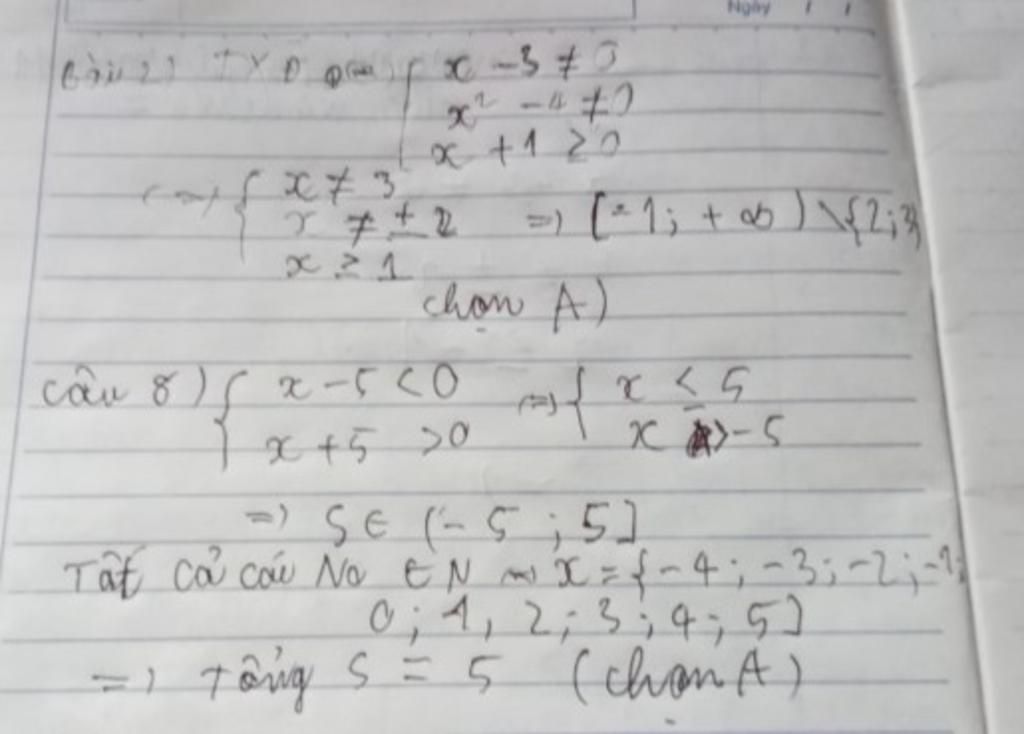 Ngày / /
Câu 2) TXĐ { x - 3 ≠ 0
x² - 4 ≠ 0
x + 1 ≥ 0
<=> { x ≠ 3
x ≠ ± 2 => [-1; +∞) \ {2; 3}
x ≥ 1
chọn A)
Câu 8) { x - 5 < 0 <=> { x ≤ 5
x + 5 > 0 x > - 5
=> S ∈ (- 5 ; 5]
Tất cả các No ∈ N x = {-4; -3; -2; -1;
0; 1, 2; 3; 4; 5]
=> tổng S = 5 (chọn A)